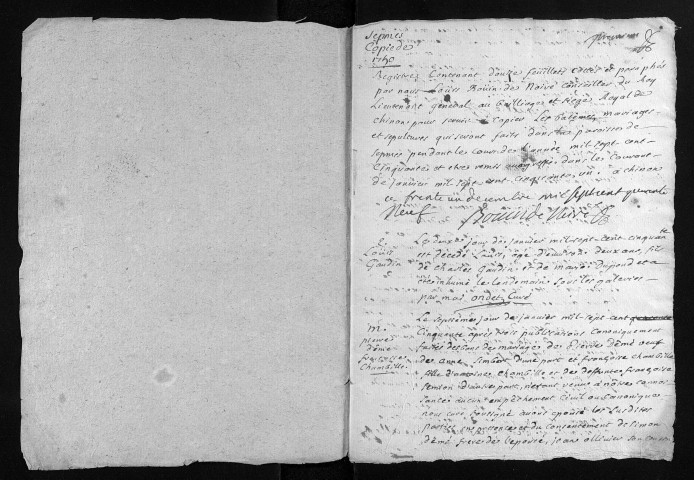 Sepmes
Copie de
1750
premier
Registre Contenant douze feuillets cottés et paraphés
par nous Louis Bouin de Noiré Conseiller du Roy
Lieutenant général au Bailliage et siège Royal de
chinon pour servir a copier Les batêmes, mariages
et sepultures qui seront faits dans la paroisse de
sepmes pendant le Cours de L'année mil sept cent
Cinquante et etre remis au greffe dans le Courant
de janvier mil sept cent cinquante un. a chinon
ce trente un decembre mil sept cent quarante
Neuf Bouin de Noiré
S.
Louis
Gaudin
Le deux jour de janvier mil sept cent cinquante
est décédé Louis, agé d'environ deux ans, fils
de charles Gaudin et de marie Dupond et a
été inhumé le Lendemain sous les galeries
par moi curé
M.
pierre
démé
françoise
Chambille
Le septième jour de janvier mil sept cent
Cinquante après trois publications Canoniquement
faites des bans de mariage de pierre démé veuf
de anne Simbert d'une part et françoise chambille
fille d'antoine Chambille et de deffunte françoise
d'autre part, n'etant venu à nôtre connois-
sance aucun empêchement Civil ou Canonique
nous curé soussigné avons epousé les susdites
parties en presence et du consentement de simon
démé frere de l'epoux, jean ollivier